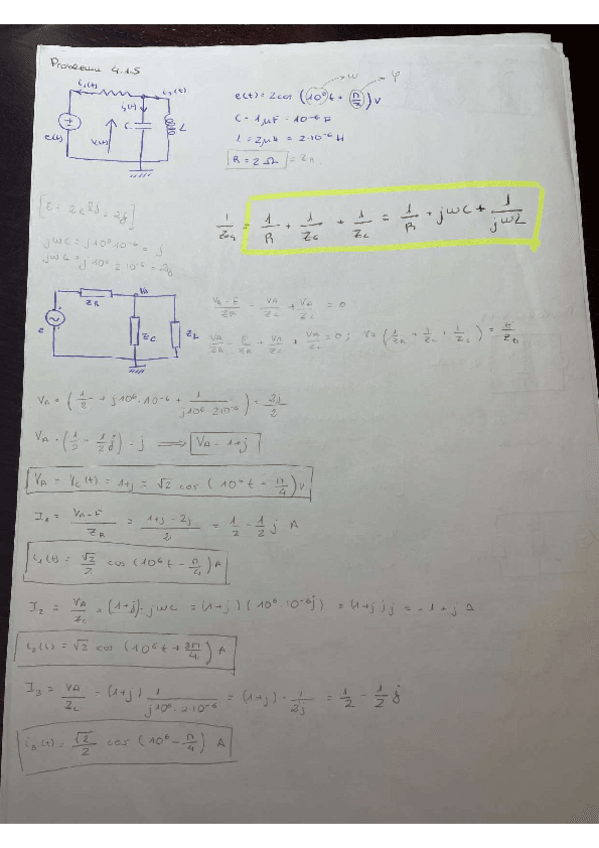 Problema 4.1.5
i₁(t) i₃(t)
i₂(t)
e(t) V(t) C L
e(t) = 2cos (10⁶t + π/2) v → w → φ
C = 1μF = 10⁻⁶ F
L = 2μH = 2·10⁻⁶ H
R = 2Ω = Z_R
1/Z_eq = 1/R + 1/Z_C + 1/Z_L = 1/R + jwC + 1/jwL
jwC = j10⁶·10⁻⁶ = j
jwL = j10⁶·2·10⁻⁶ = 2j
Z_R V_A
e Z_C Z_L
(V_A - E)/Z_R - V_A/Z_C + V_A/Z_L = 0
V_A/Z_R - E/Z_R + V_A/Z_C + V_A/Z_L = 0; V_A (1/Z_R + 1/Z_C + 1/Z_L) = E/Z_R
V_A = (1/2 + j10⁶·10⁻⁶ + 1/(j10⁶·2·10⁻⁶)) = 2j/2
V_A = (1/2 - 1/2 j) = j ⟹ V_A = 1+j
V_A = V_C(t) = 1+j = √2 cos (10⁶t + π/4) v
I₁ = (V_A - E)/Z_R = (1+j-2j)/2 = 1/2 - 1/2 j A
i₁(t) = √2/2 cos (10⁶t - π/4) A
I₂ = V_A/Z_C = (1+j)·jwC = (1+j)(10⁶·10⁻⁶j) = (1+j)j = -1+j A
i₂(t) = √2 cos (10⁶t + 3π/4) A
I₃ = V_A/Z_L = (1+j) 1/(j10⁶·2·10⁻⁶) = (1+j)·1/2j = 1/2 - 1/2 j
i₃(t) = √2/2 cos (10⁶ - π/4) A